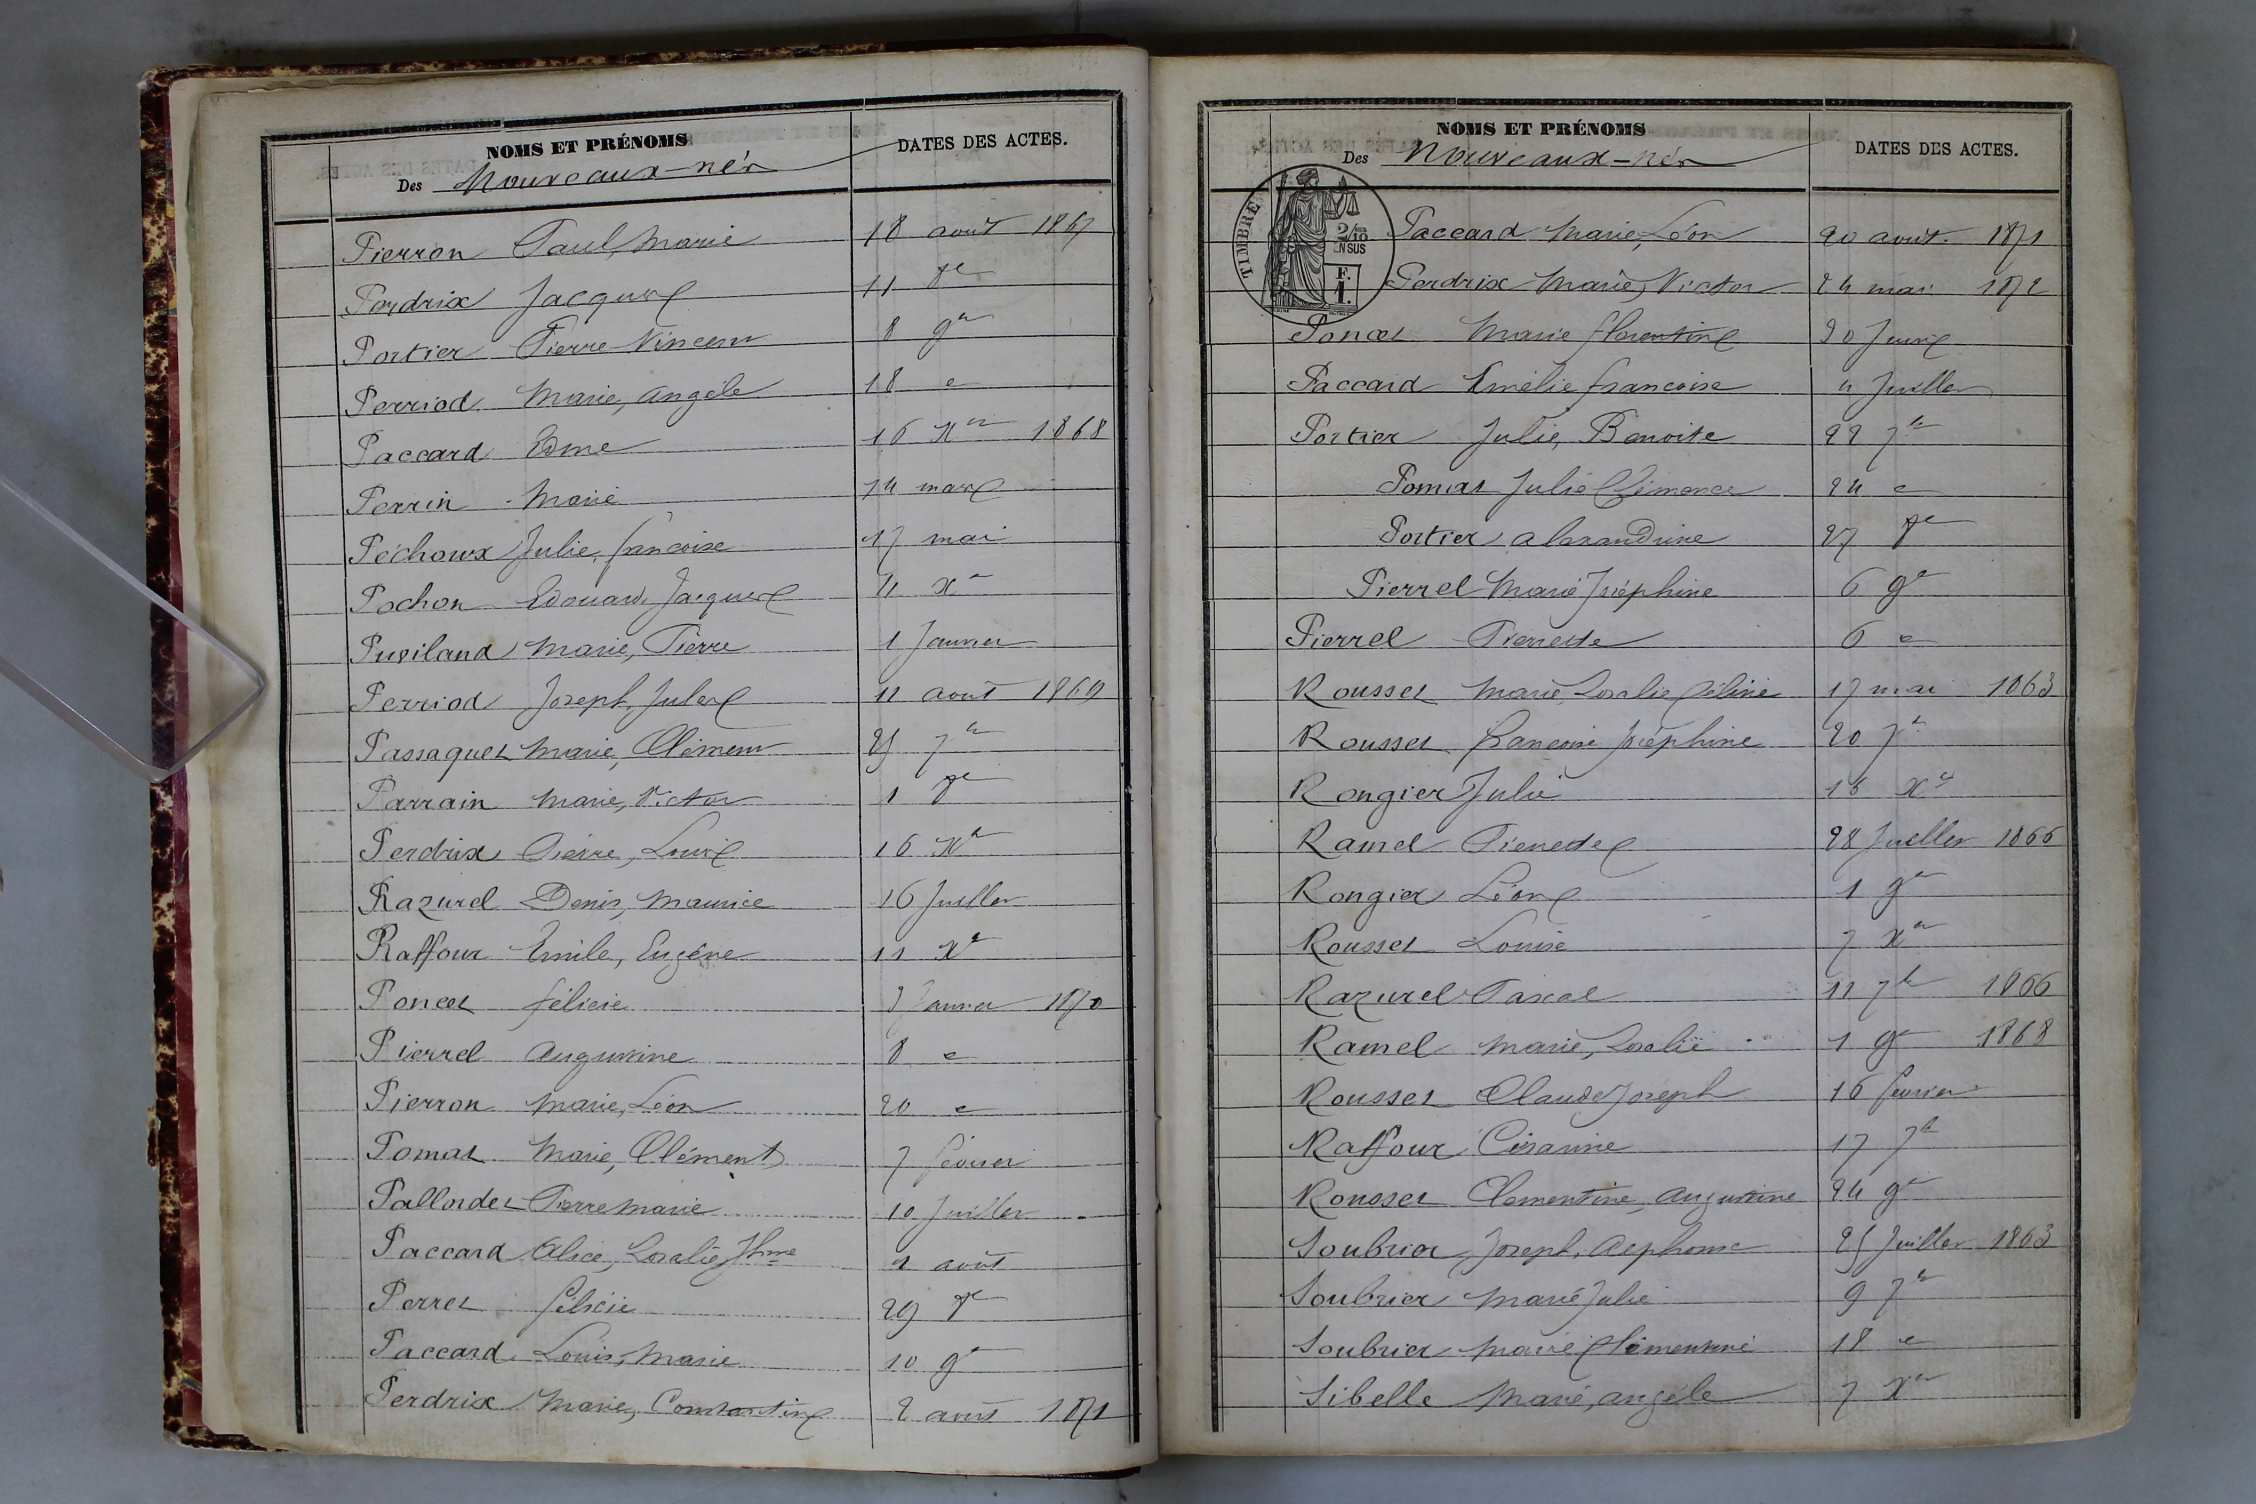 NOMS ET PRÉNOMS
DATES DES ACTES.
Des Nouveaux-nés
Pierron Paul, Marie 18 août 1867
Perdrix Jacques 11 8e
Portier Pierre Vincent 8 9re
Perriod Marie, Angèle 18 e
Paccard Edme 16 Xre 1868
Perrin Marie 14 mars
Péchoux Julie, françoise 17 mai
Pochon Edouard, Jacques 4 Xe
Puviland Marie, Pierre 1 Janvier
Perriod Joseph, Jules 11 août 1869
Passaquet Marie, Clément 25 7re
Parrain Marie, Victor 1 8e
Perdrix Pierre, Louis 16 Xe
Razurel Denis, Maurice 16 Juillet
Raffour Emile, Eugène 11 Xe
Poncet félicie 3 Janvier 1870
Pierrel Augustine 8 e
Pierron Marie, Léon 20 e
Pomat Marie, Clément 7 février
Pallordet Pierre Marie 10 Juillet
Paccard Alice, Rosalie, Jhine 2 août
Perret félicie 29 8e
Paccard Louis, Marie 10 9e
Perdrix Marie, Constantin 2 août 1871
NOMS ET PRÉNOMS
DATES DES ACTES.
Des Nouveaux-nés
TIMBRE
2/10 EN SUS
F. 1.
Paccard Marie, Léon 20 août 1871
Perdrix Marie, Victor 24 mai 1872
Poncet Marie florentine 20 Juin
Paccard Emélie françoise 4 Juillet
Portier Julie, Benoite 22 7re
Pomat Julie Clémence 24 e
Portier alexandrine 27 8e
Pierrel Marie Joséphine 6 9e
Pierrel Pierrette 6 e
Rousset Marie, Rosalie Céline 17 mai 1863
Rousset françoise Joséphine 20 7e
Rongier Julie 16 Xe
Ramel Pierrette 28 Juillet 1866
Rongier Léon 1 9re
Rousset Louise 7 Xre
Razurel Pascal 11 7e 1866
Ramel Marie, Rosalie 1 9e 1868
Rousset Claude Joseph 16 février
Raffour Césarine 17 7e
Rousset Clementine, Augustine 24 9e
Soubrier Joseph, Alphonse 25 Juillet 1863
Soubrier Marie Julie 9 7re
Soubrier Marie Clémentine 18 e
Sibelle Marie, angèle 7 Xre